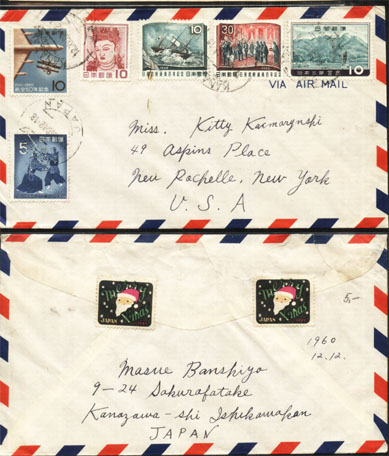 10
日本郵便
10
10
日本郵便
30
日本郵便
日本郵便
10
5
日本郵便
VIA AIR MAIL
Miss. Kitty Kaimorynshi
49 Aspins Place
New Rochelle, New York
U. S. A
Merry
Xmas
JAPAN
Merry
Xmas
JAPAN
5,-
1960
12.12.
Masue Banshiyo
9-24 Sakurafatake
Kanazawa-shi Ishikawaken
JAPAN